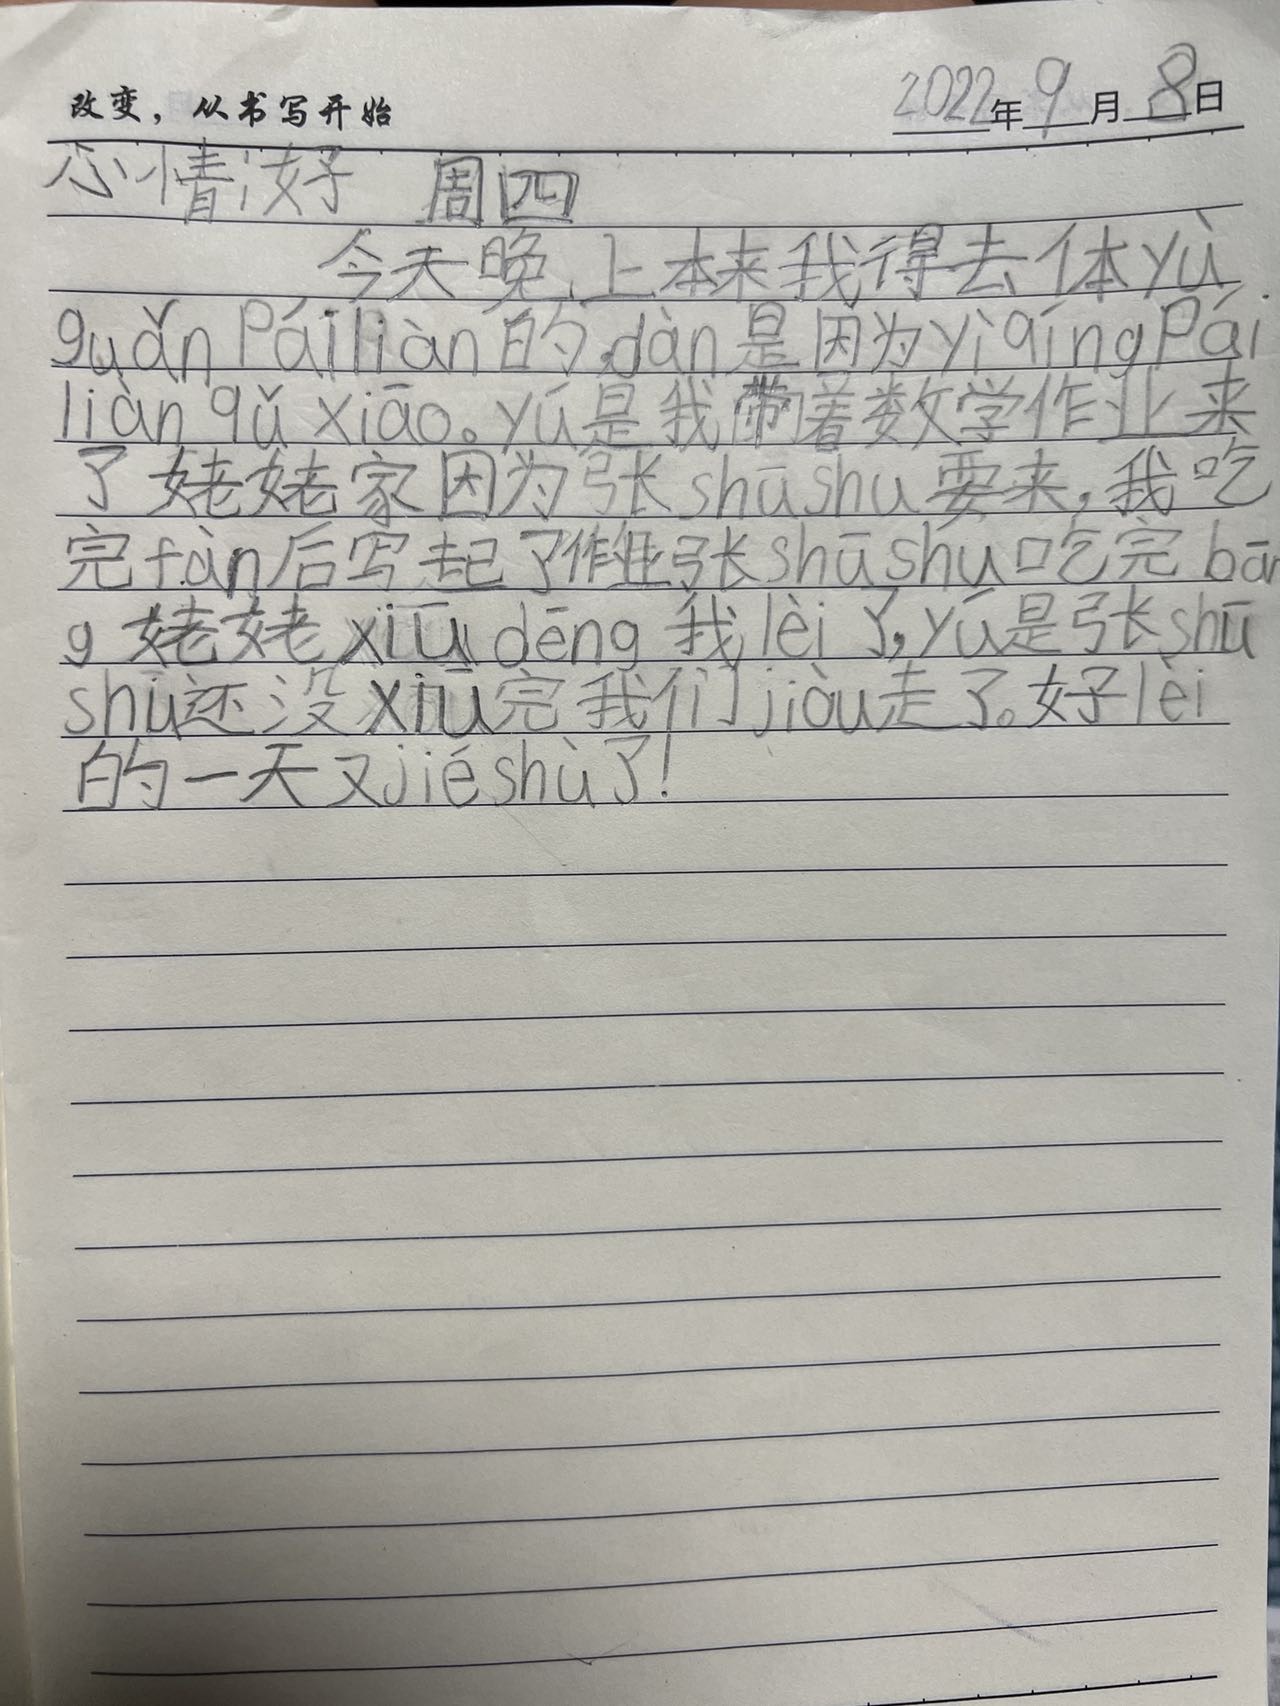 改变，从书写开始 2022年9月8日
心情：好 周四
今天晚上本来我得去体yù
guǎn Páiliàn的,dàn是因为yìqíngPái
liàn qǔ xiāo。yú是我带着数学作业来
了姥姥家因为张shūshu要来，我吃
完fàn后写起了作业张shūshu吃完bān
g 姥姥xiū dēng 我lèi了，yú是张shū
shū还没xiū完我们jiòu走了。好lèi
的一天又jiéshù了！